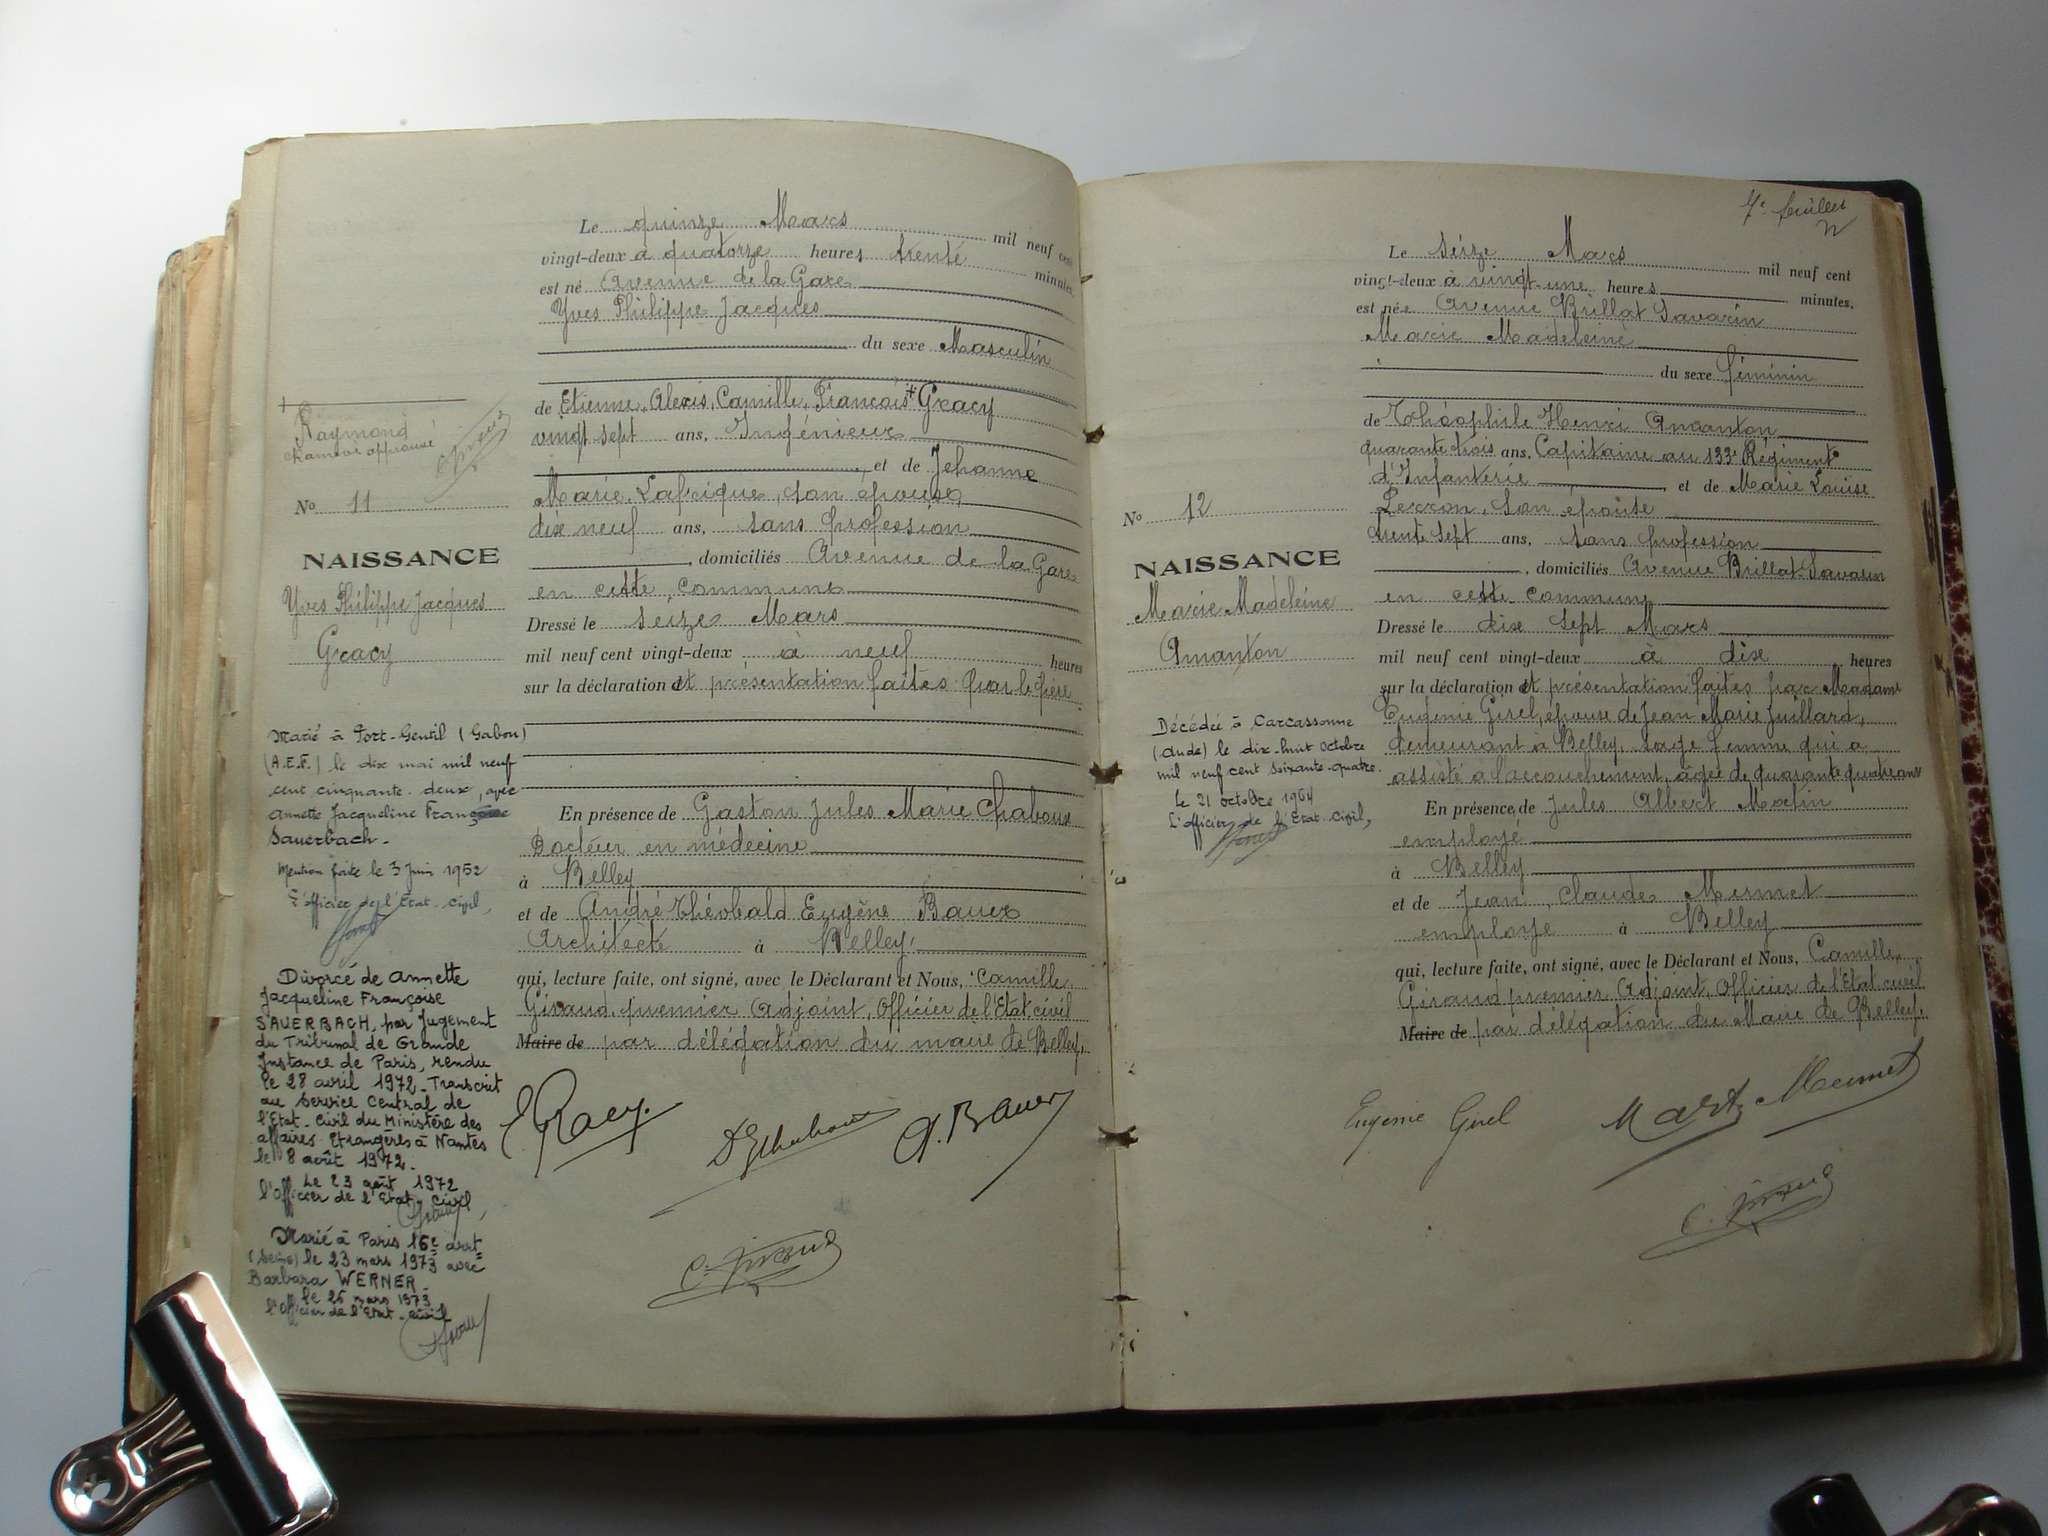 Le quinze Mars mil neuf cent
vingt-deux à quatorze heures trente minutes,
est né Avenue de la Gare
Yves Philippe Jacques
du sexe Masculin
de Etienne, Alexis, Camille, François + Gracy
vingt sept ans, Ingénieur
et de Jehanne
Marie Lafrique, son épouse
dix neuf ans, sans profession
, domiciliés Avenue de la Gare
en cette commune
Dressé le seize Mars
mil neuf cent vingt-deux à neuf heures
sur la déclaration et présentation faites par le père
En présence de Gaston Jules Marie Chaboux
Docteur en médecine
à Belley
et de André Théobald Eugène Bauer
Architecte à Belley,
qui, lecture faite, ont signé, avec le Déclarant et Nous, Camille
Giraud, premier Adjoint, Officier de l'Etat civil
Maire de par délégation du maire de Belley,
+
Raymond
approuvé
No 11
NAISSANCE
Yves Philippe Jacques
Gracy
Marié à Port-Gentil (Gabon)
(A.E.F.) le dix mai mil neuf
cent cinquante-deux, avec
Annette Jacqueline Françoise
Sauerbach.
Mention faite le 3 Juin 1952
L'officier de l'Etat-Civil,
Divorcé de Annette
Jacqueline Françoise
SAUERBACH, par Jugement
du Tribunal de Grande
Instance de Paris, rendu
le 28 avril 1972. Transcrit
au Service Central de
l'Etat-Civil du Ministère des
affaires Etrangères à Nantes
le 8 août 1972.
Le 23 août 1972
l'Officier de l'Etat-Civil,
Marié à Paris 16e arrt
(Seine) le 23 mars 1973 avec
Barbara WERNER
le 26 mars 1973
l'Officier de l'Etat-civil
A. Bauer
C. Giraud
7e feuillet
Le seize Mars mil neuf cent
vingt-deux à vingt-une heures minutes,
est née Avenue Brillat Savarin
Marie Madeleine
du sexe féminin
de Théophile Henri Amanton
quarante trois ans, Capitaine au 133e Régiment
d'Infanterie, et de Marie Louise
Perron, son épouse
trente sept ans, sans profession
, domiciliés Avenue Brillat-Savarin
en cette commune
Dressé le dix sept Mars
mil neuf cent vingt-deux à dix heures
sur la déclaration et présentation faites par Madame
Eugénie Girel, épouse de Jean Marie Juillard,
demeurant à Belley, sage femme qui a
assisté à l'accouchement, âgée de quarante quatre ans
En présence de Jules Albert Martin
employé
à Belley
et de Jean, Claude Mermet
employé à Belley
qui, lecture faite, ont signé, avec le Déclarant et Nous, Camille
Giraud premier Adjoint, Officier de l'Etat civil
Maire de par délégation du Maire de Belley,
No 12
NAISSANCE
Marie Madeleine
Amanton
Décédée à Carcassonne
(Aude) le dix-huit Octobre
mil neuf cent soixante-quatre.
Le 21 octobre 1964
L'officier de l'Etat-Civil,
Eugénie Girel
Mermet
C. Giraud